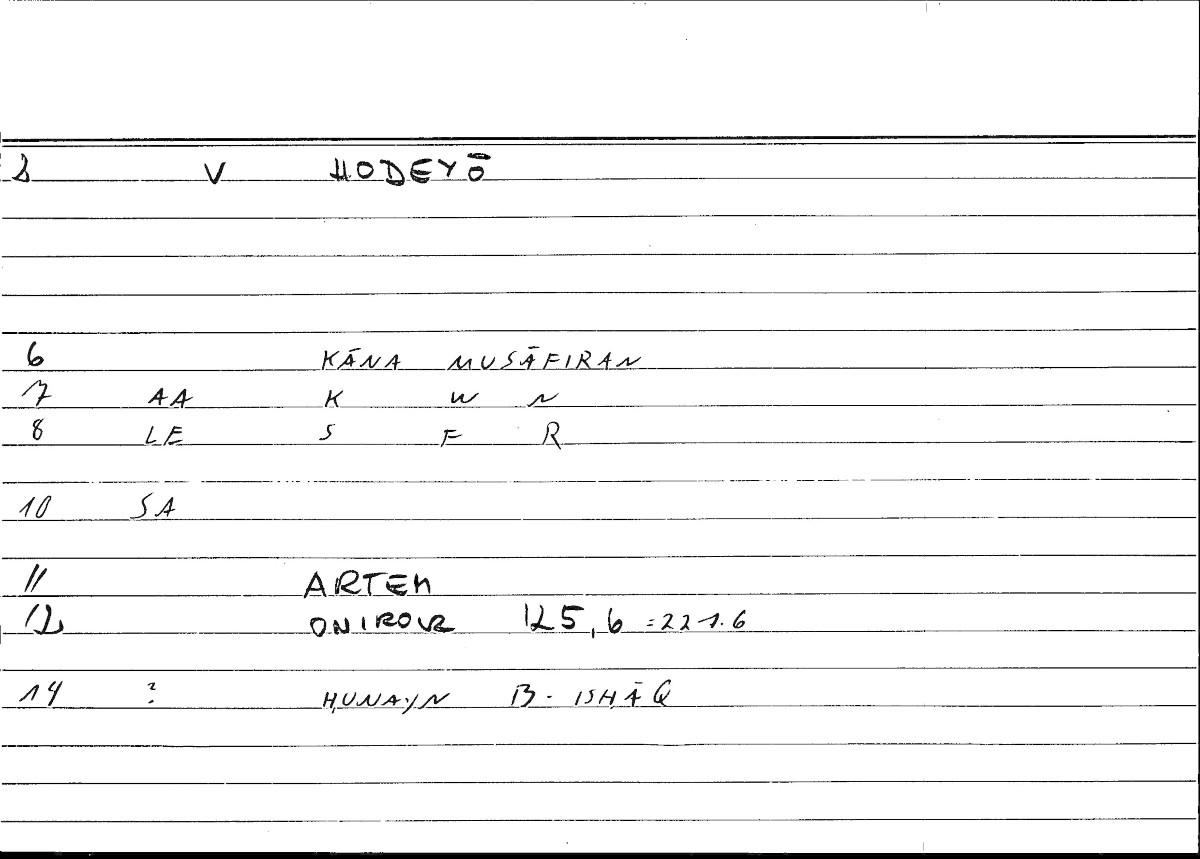 2 V HODEYŌ
6 KĀNA MUSĀFIRAN
7 AA K W N
8 LE S F R
10 SA
11 ARTEM
12 ONIROCR 125,6 =221.6
14 ? ḤUNAYN B. ISḤĀQ